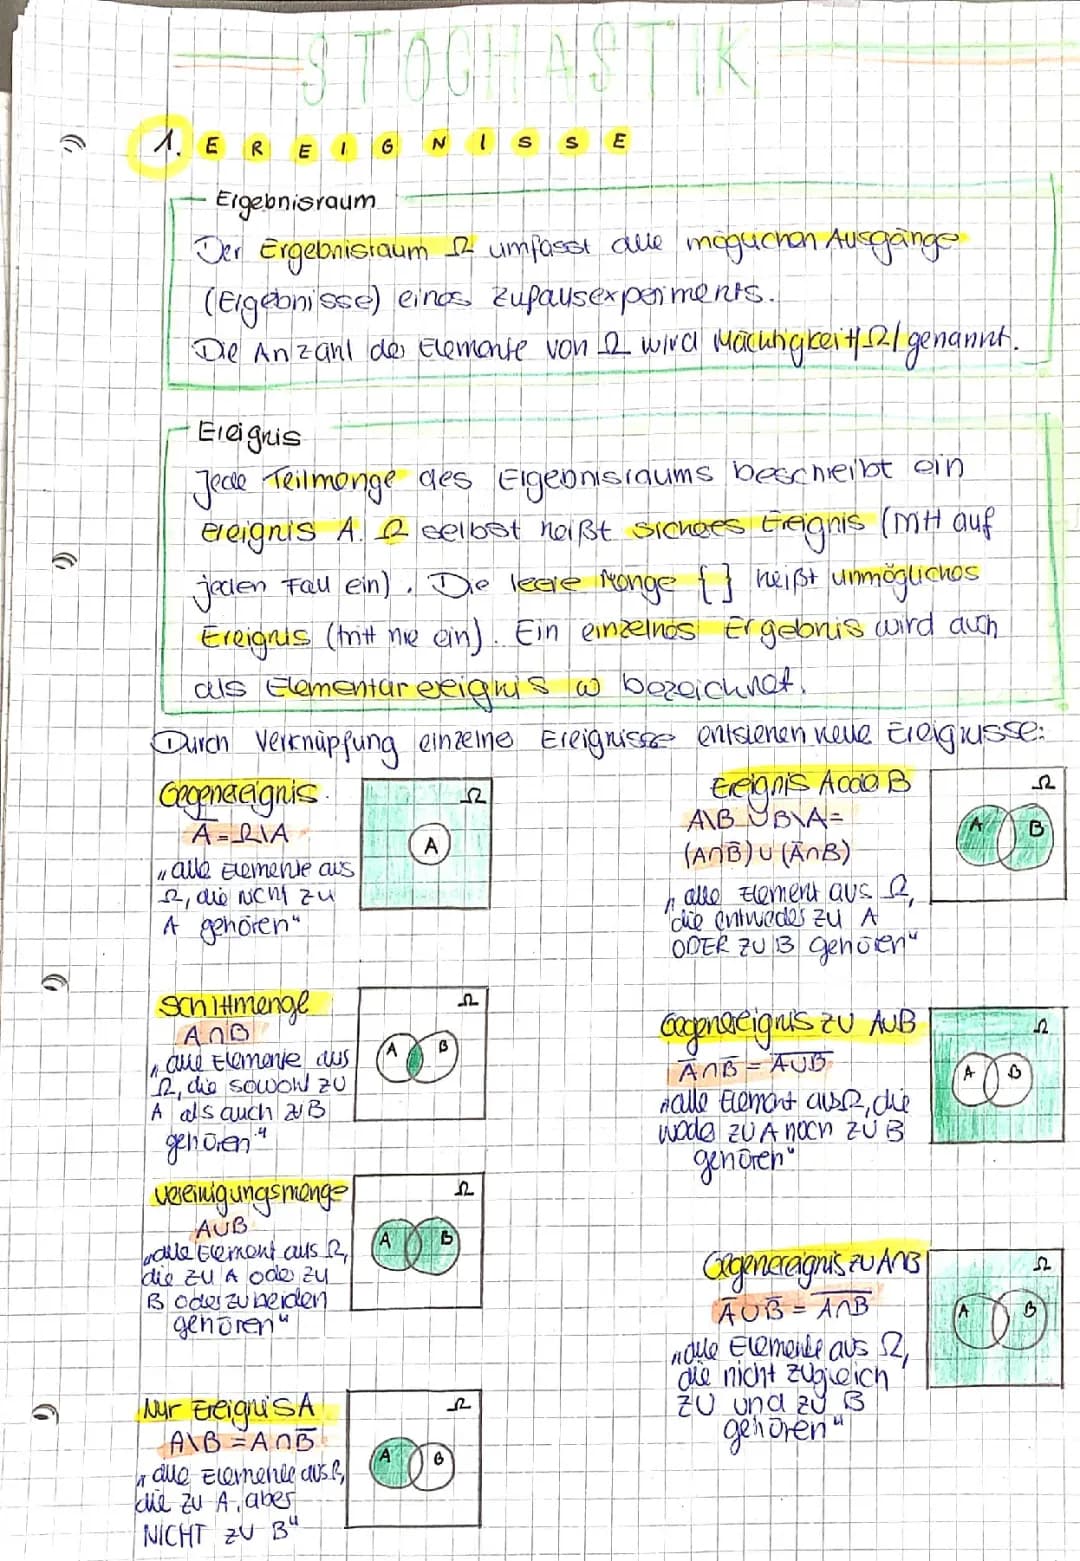 STOCHASTIK
1. EREIGNISSE
Ergebnisraum
Der Ergebnisraum Ω umfasst alle möglichen Ausgänge
(Ergebnisse) eines Zufallsexperiments.
Die Anzahl der Elemente von Ω wird Mächtigkeit |Ω| genannt.
Ereignis
Jede Teilmenge des Ergebnisraums beschreibt ein
Ereignis A. Ω selbst heißt sicheres Ereignis (tritt auf
jeden Fall ein). Die leere Menge { } heißt unmögliches
Ereignis (tritt nie ein). Ein einzelnes Ergebnis wird auch
als Elementarereignis ω bezeichnet.
Durch Verknüpfung einzelne Ereignisse entstehen neue Ereignisse:
Gegenereignis
A̅ = Ω\A
„alle Elemente aus
Ω, die nicht zu
A gehören“
Ω
A
Schnittmenge
A∩B
„alle Elemente aus
Ω, die sowohl zu
A als auch zu B
gehören“
Ω
A B
Vereinigungsmenge
A∪B
„alle Element aus Ω,
die zu A oder zu
B oder zu beiden
gehören“
Ω
A B
Nur Ereignis A
A\B = A∩B̅
„alle Elemente aus Ω,
die zu A, aber
NICHT zu B“
Ω
A B
Ereignis A oder B
A\B ∪ B\A =
(A∩B̅) ∪ (A̅∩B)
„alle Element aus Ω,
die entweder zu A
ODER zu B gehören“
Ω
A B
Gegenereignis zu A∪B
A̅∩B̅ = A̅∪̅B̅
„alle Element aus Ω, die
weder zu A noch zu B
gehören“
Ω
A B
Gegenereignis zu A∩B
A̅∪B̅ = A̅∩̅B̅
„alle Elemente aus Ω,
die nicht zugleich
zu und zu B
gehören“
Ω
A B